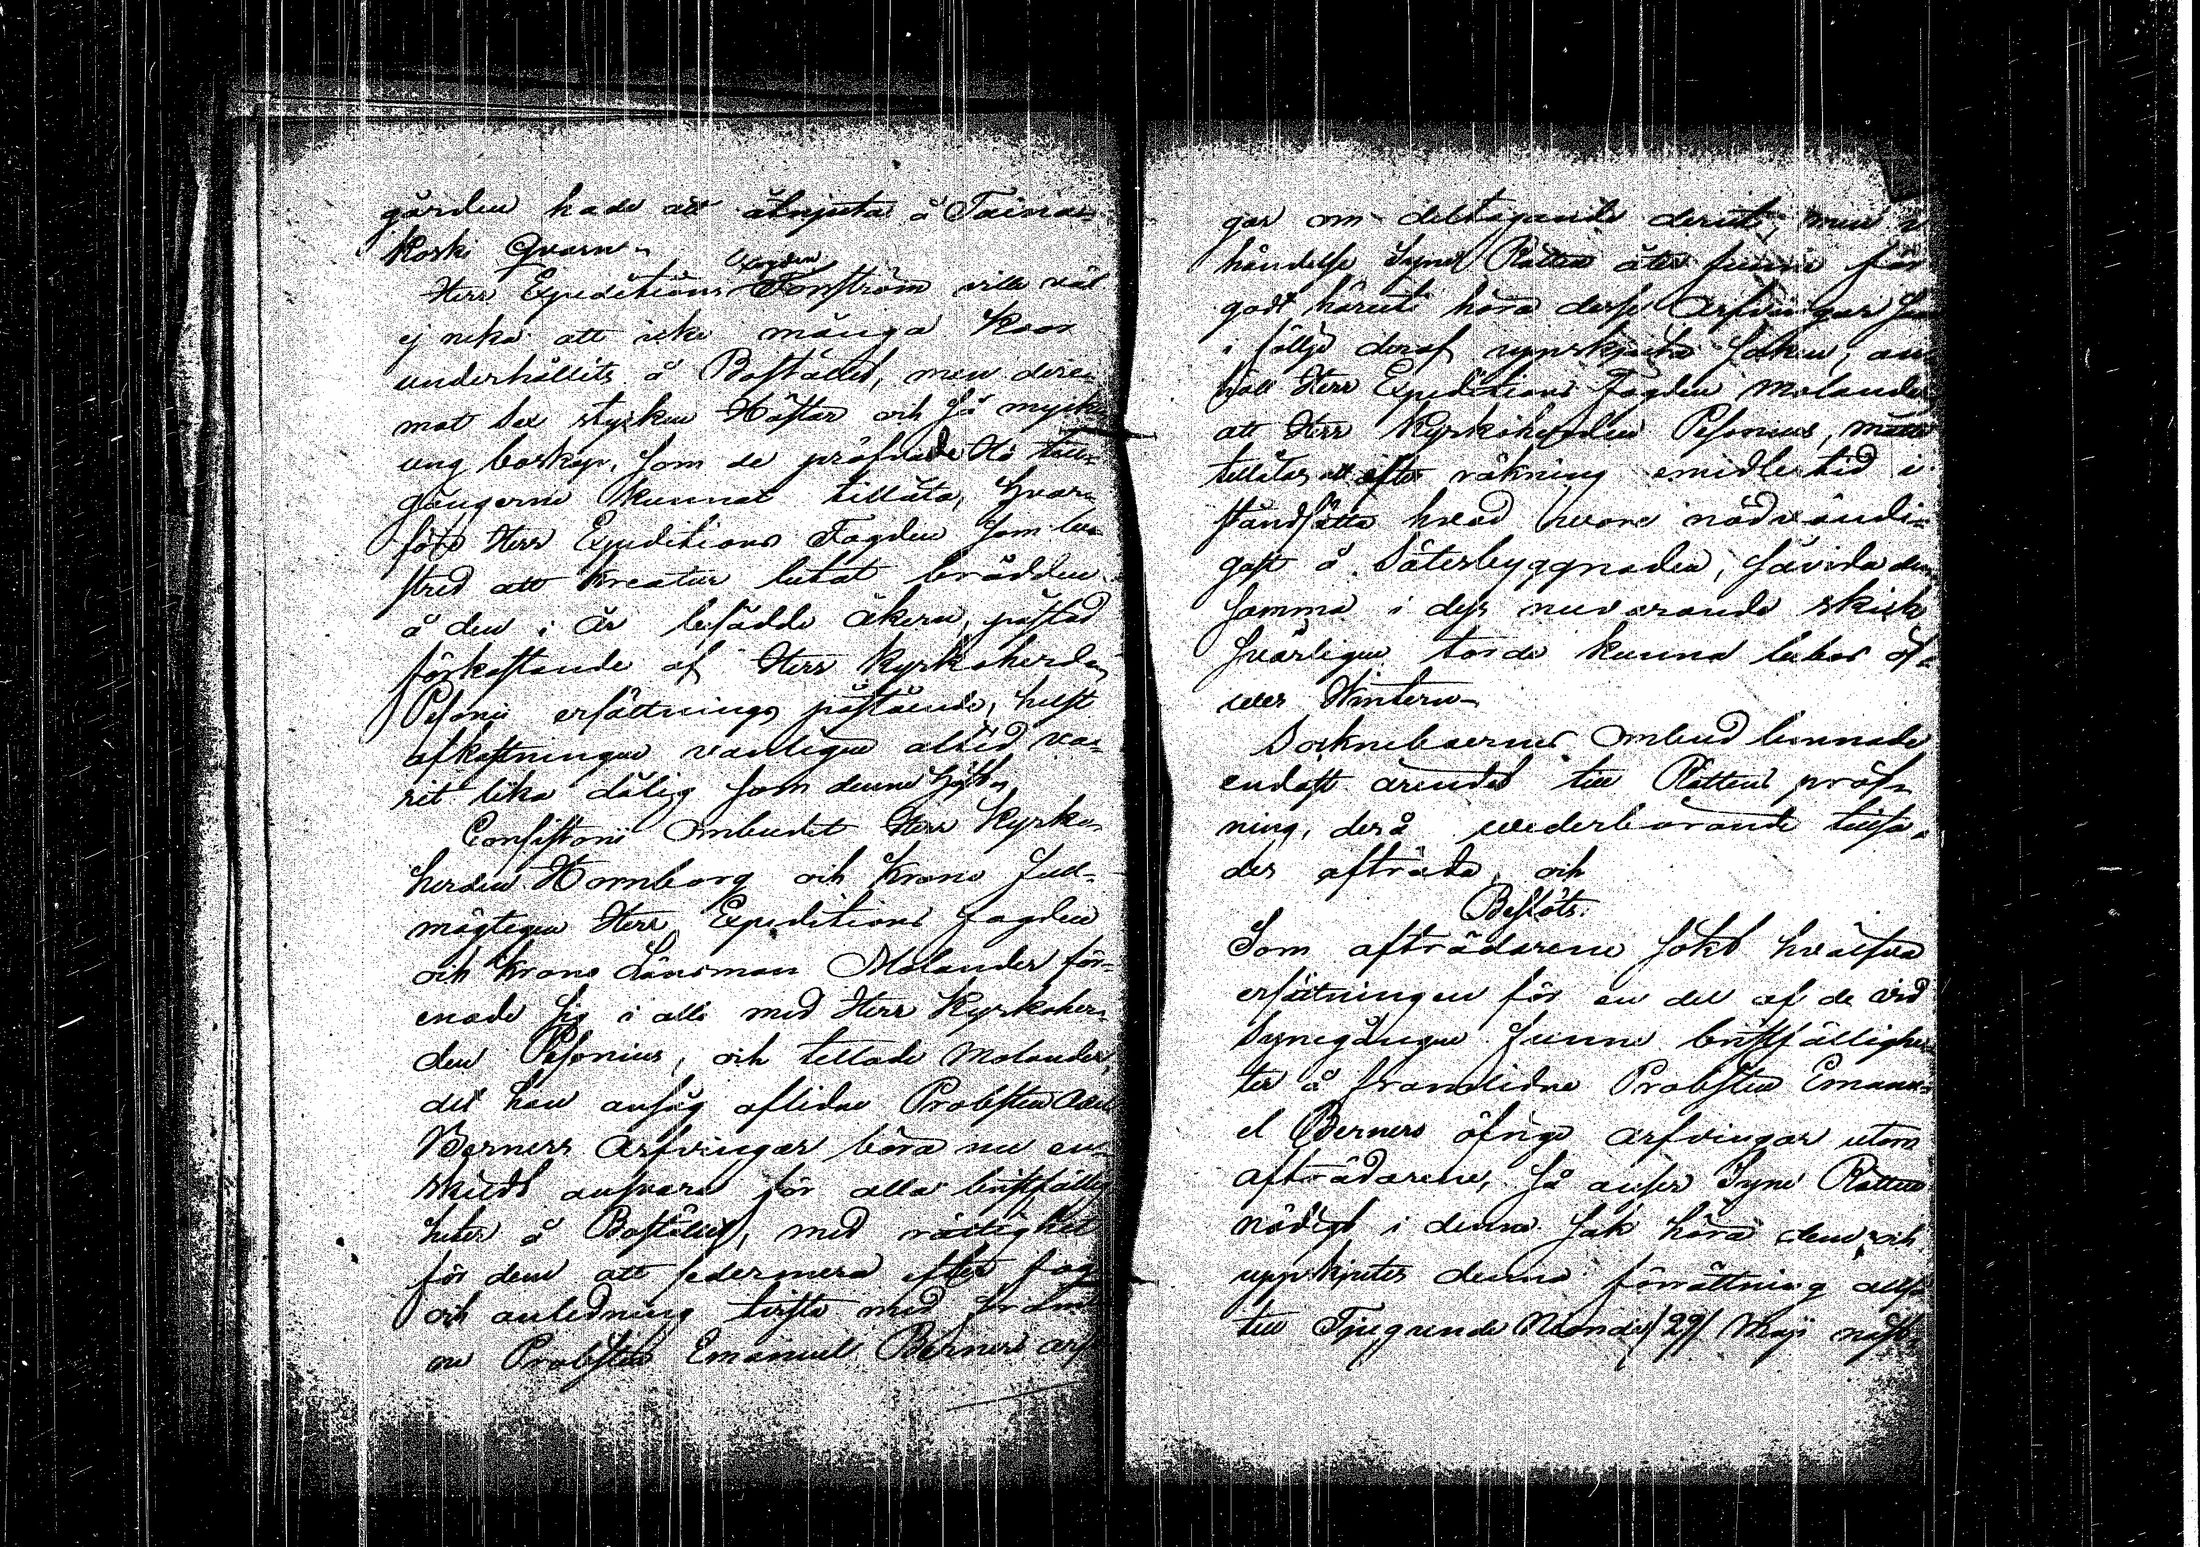 gården hade att åtnjuta å Taina-
koski Qvarn-
Fogden
Herr Expeditions Forsström ville väl
ej neka att icke många Koor
underhållits å Bostället, men dere-
mot sex stycken Hästar och så mycken
ung boskap, som de pröfvade Hö till-
gångerne kunnat tillåta, hvar-
före Herr Expeditions Fogden som be-
stred att Kreatur betat brådden
å den i År besådde åkern, påstod
förkastande af Herr Kyrkoherden
Pesonii ersättnings påstående, helst
afkastningen vanligen altid va-
rit lika dålig som denne höst-
Consistorii Ombudet Herr Kyrko-
herden Hornborg och Krono full-
mägtigen Herr Expeditions fogden
och Krono Länsman Molander för-
enade sig i allt med Herr Kyrkoher-
den Pesonius, och tillade Molander,
det han ansåg aflidne Probsten
Berners Arfvingar böra nu en-
skildt ansvara för alla bristfällig
heter å Bostället, med rättighet
för dem att sedermera efter fog
och anledning tvista med
ne Probsten Emanuel Berners arf
gar om deltagande deruti, men i
håndelse Syne Rätten åter funne för
godt häruti höra desse Arfvingar
i följd deraf uppskjuta saken, an
höll Herr Expeditions Fogden Molander
att Herr Kyrkoherden Pesonius, måtte
tillåtas att efter räkning emidlertid i
ståndsätta hvad wore nödvändi-
gast å Säterbyggnaden, såvida den
samma i dess nuvarande skick
svårligen torde kunna bebos öf-
wer Wintern-
Sockneboernes Ombud lemnade
endast ärendet till Rättens pröf-
ning, derå wederbörande tillsa-
des afträda, och
Beslöts:
Som afträdarene sökt hvälfva
ersättningen för en del af de vid
Synegången funne bristfällighe
ter å framlidne Probsten Emanu-
el Berners öfrige arfvingar utom
afträdarene, så anser Syne Rätten
nödigt i denna sak höra dem och
uppskjutes denna förrättning allt
till Tjugunde Nionde /29/ Maji näst-